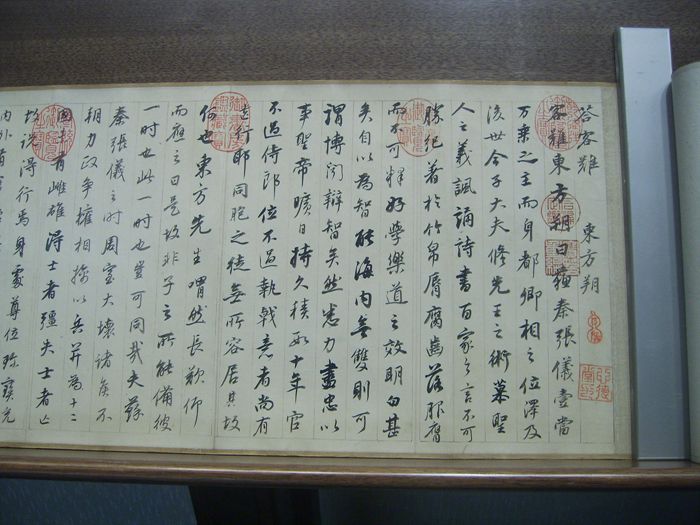 答客難 東方朔
客難東方朔曰蘇秦張儀壹當
萬乘之主而身都卿相之位澤及
後世今子大夫修先王之術慕聖
人之義諷誦詩書百家之言不可
勝紀著於竹帛脣腐齒落服膺
而不可釋好學樂道之效明白甚
矣自以為智能海內無雙則可
謂博聞辯智矣然悉力盡忠以
事聖帝曠日持久積數十年官
不過侍郎位不過執戟意者尚有
遺行耶同胞之徒無所容居其故
何也東方先生喟然長歎仰
而應之曰是故非子之所能備彼
一時也此一時也豈可同哉夫蘇
秦張儀之時周室大壞諸侯不
朝力政爭權相擒以兵并為十二
國未有雌雄得士者彊失士者亡
故說得行焉身處尊位珍寶充
內外有倉